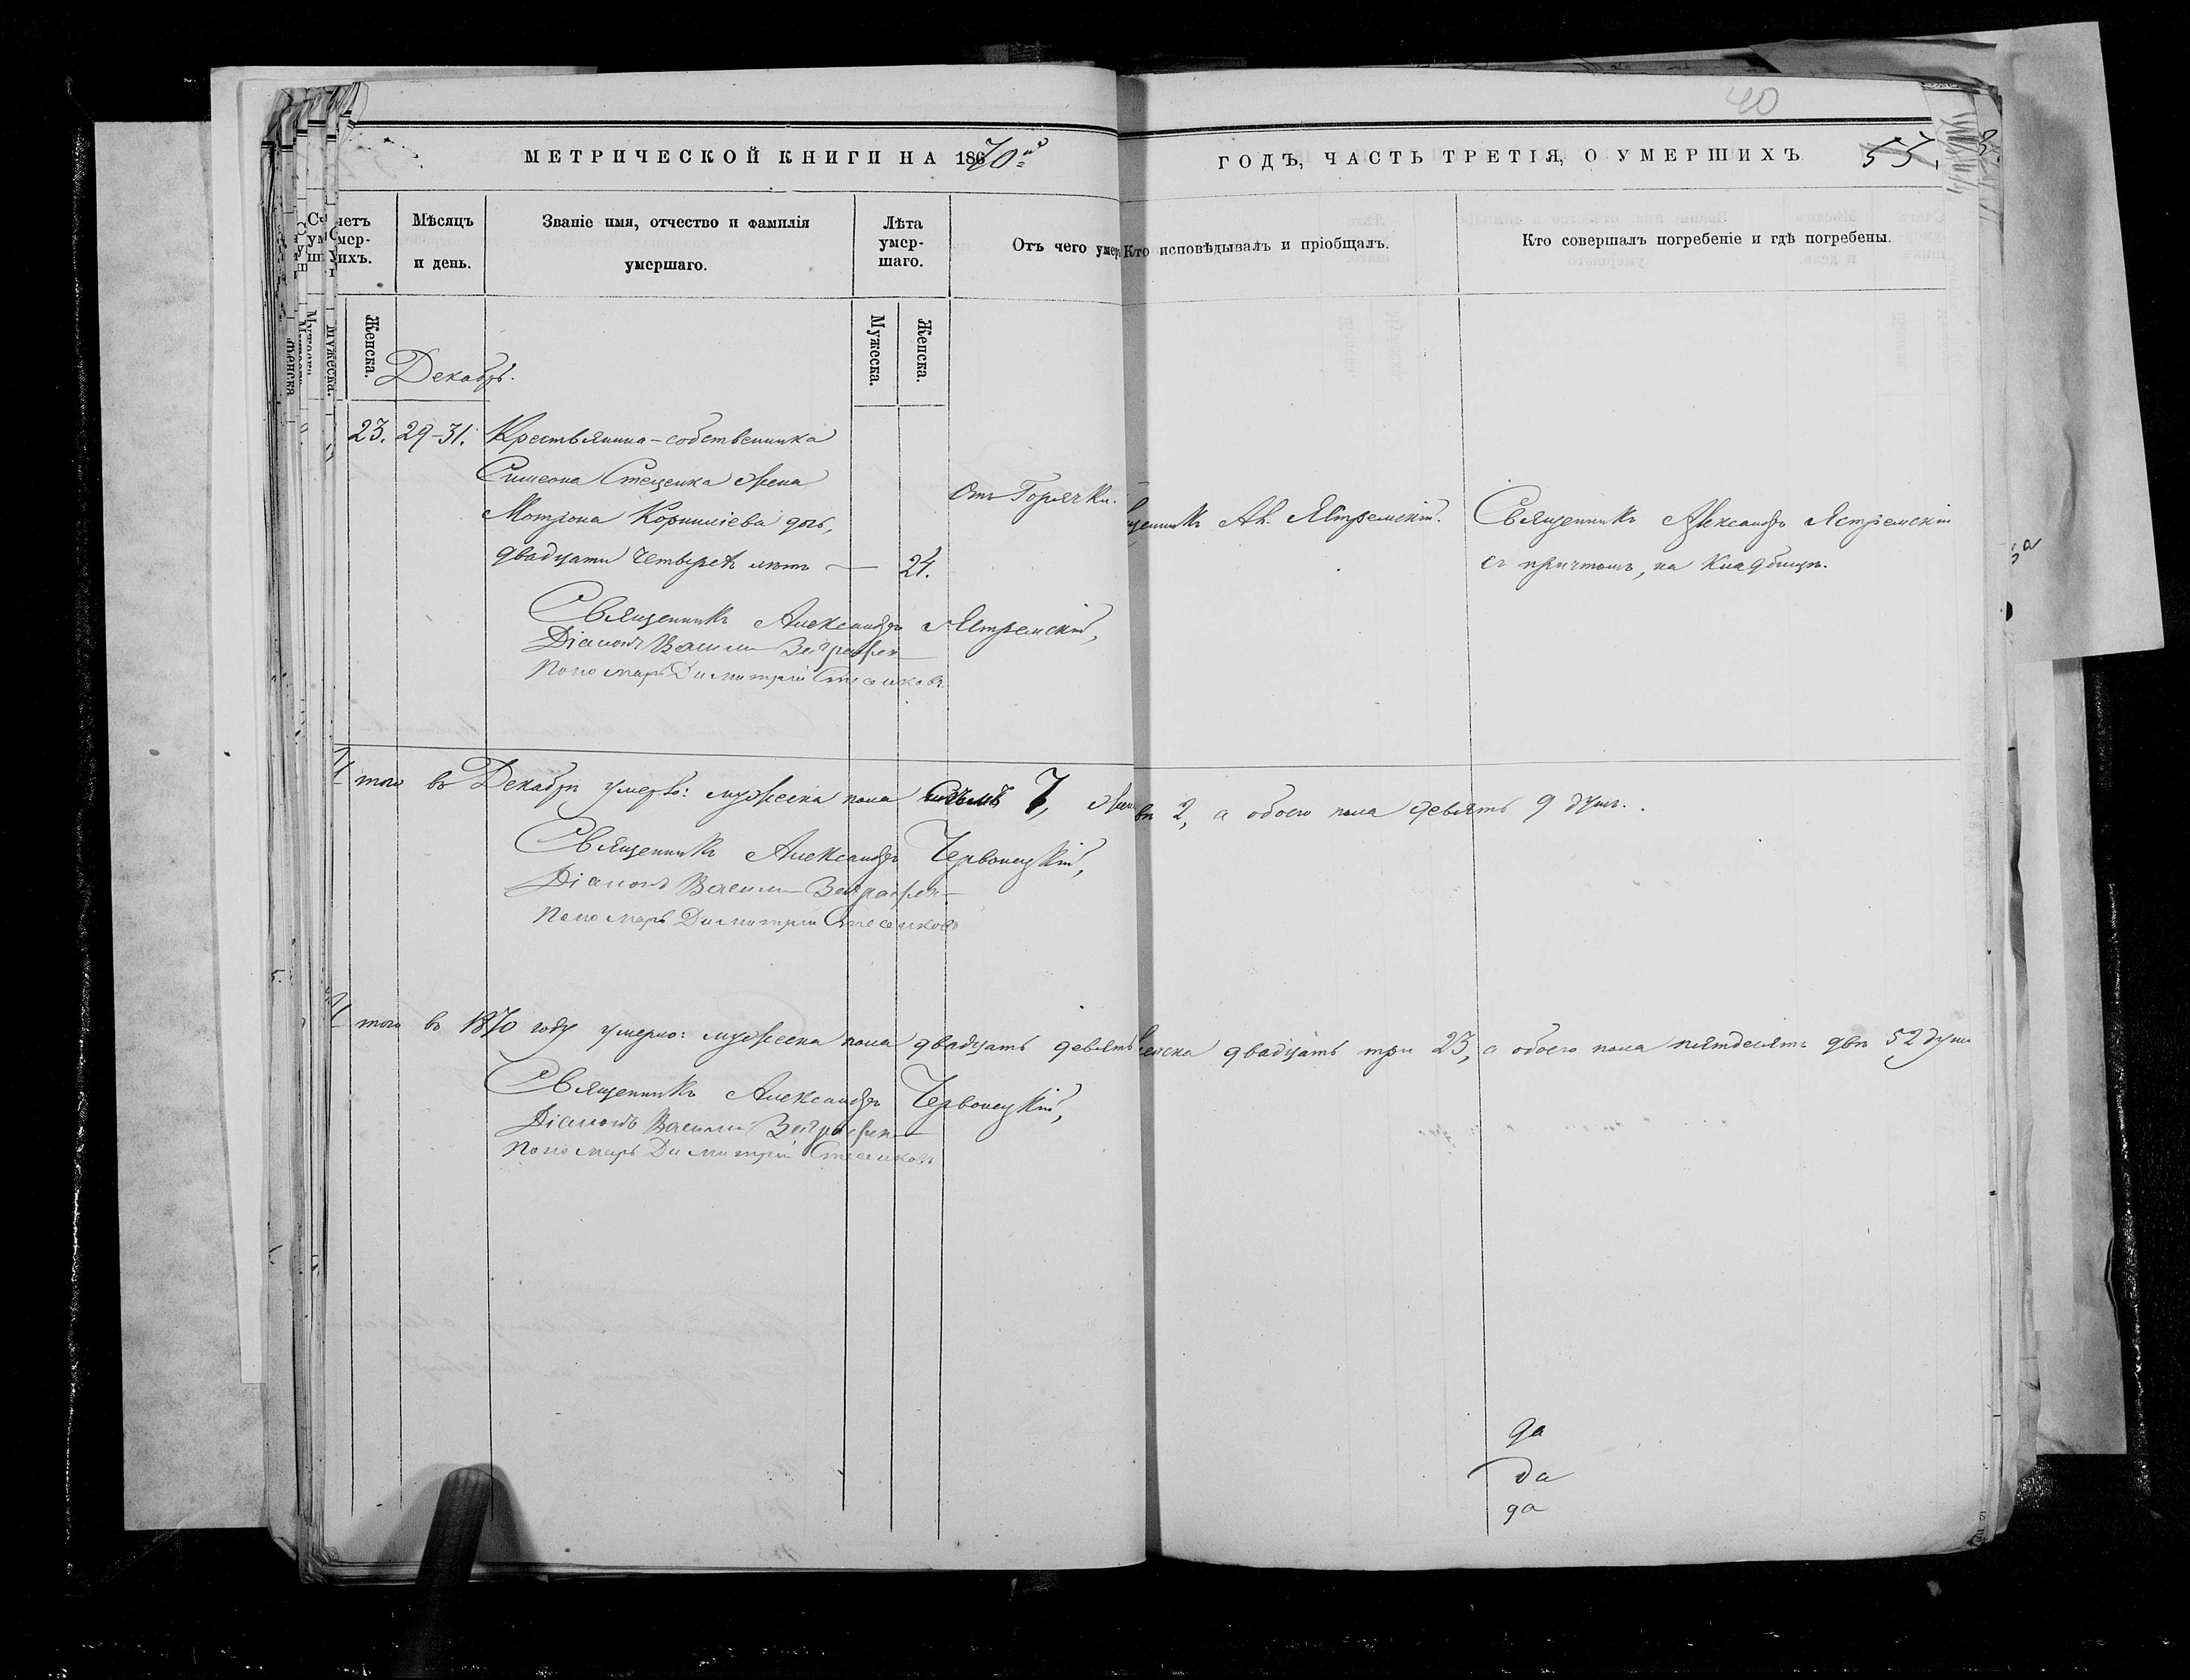 40
МЕТРИЧЕСКОЙ КНИГИ НА 1870
ГОДЪ, ЧАСТЬ ТРЕТІЯ, О УМЕРШИХЪ.
55
Мѣсяцъ и день.
Званіе имя, отчество и фамилія умершаго.
Лѣта умершаго.
Отъ чего умер
Кто исповѣдывалъ и пріобщалъ.
Кто совершалъ погребеніе и гдѣ погребены.
Женска.
Мужеска.
Женска.
Декабрь.
23. 29-31. Крестьянина-собственника
Симеона Стеценка жена
Мотрона Корнилiева дочь,
двадцати четырехъ лѣтъ — 24.
Отъ Горячки.
Ал. Ястремскій.
Священникъ Александръ Ястремскій
съ причтомъ, на кладбищѣ.
Священникъ Александръ Ястремскій,
Діаконъ Василій
Пономарь Димитрій
Итого въ Декабрѣ умерло: мужеска пола семь 7, 2, а обоего пола девять 9 душъ.
Священникъ Александръ Червонецкій,
Діаконъ Василій
Пономарь Димитрій
Итого въ 1870 году умерло: мужеска пола двадцать девять двадцать три 23, а обоего пола пятдесятъ двѣ 52 души
Священникъ Александръ Червонецкій,
Діаконъ Василій
Пономарь Димитрій
да
да
да